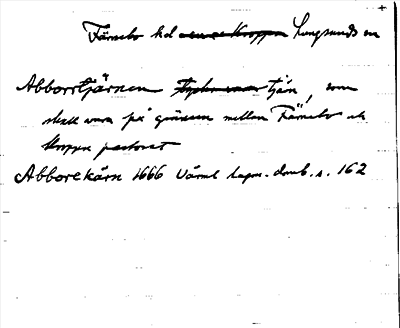 Färnebo hd Lungsunds sn
Abborrtjärnen tjärn, som
skall vara på gränsen mellan Färnebo och
Kroppa pastorat
Abborekärn 1666 Värml. lagm. domb. s. 162